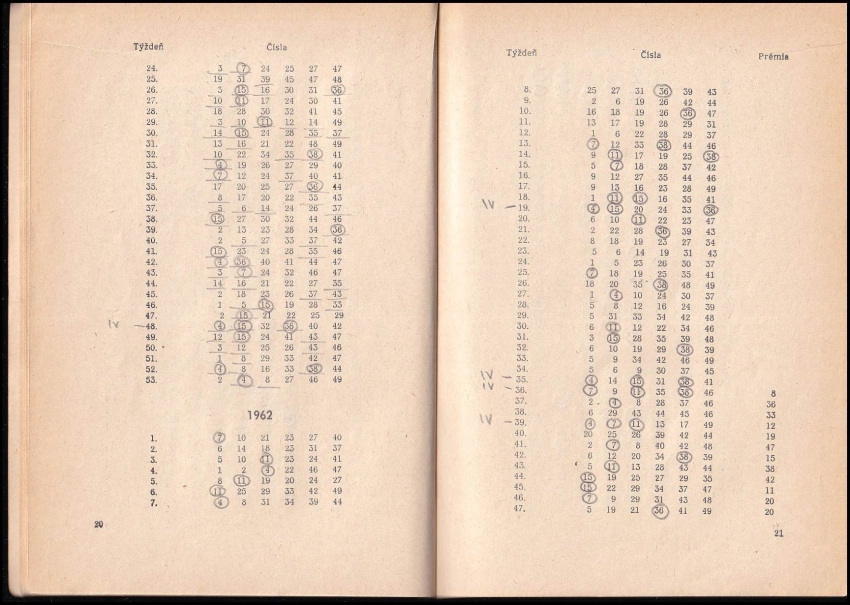 Týždeň Čísla
24. 3 7 24 25 27 47
25. 19 31 39 45 47 48
26. 3 15 16 30 31 36
27. 10 11 17 24 30 41
28. 18 28 30 32 41 45
29. 3 10 11 12 14 49
30. 14 15 24 28 35 37
31. 13 16 21 22 48 49
32. 10 22 34 35 38 41
33. 4 19 26 27 29 40
34. 7 12 24 37 40 41
35. 17 20 25 27 36 44
36. 8 17 20 22 35 43
37. 5 6 14 24 26 37
38. 15 27 30 32 44 46
39. 2 13 23 28 34 36
40. 2 5 27 33 37 42
41. 15 23 24 28 35 46
42. 4 36 40 41 44 47
43. 3 7 24 32 46 47
44. 14 16 21 22 27 35
45. 2 18 23 26 37 43
46. 1 5 15 19 28 33
47. 2 15 21 22 25 29
IV 48. 4 15 32 36 40 42
49. 12 15 24 41 43 47
50. 3 12 25 26 43 46
51. 1 8 29 33 42 47
52. 4 8 16 33 38 44
53. 2 4 8 27 46 49
1962
1. 7 10 21 23 27 40
2. 6 14 18 23 31 37
3. 5 10 11 23 24 41
4. 1 2 4 22 46 47
5. 8 11 19 20 24 27
6. 11 25 29 33 42 49
7. 4 8 31 34 39 44
20
Týždeň Čísla Prémia
8. 25 27 31 36 39 43
9. 2 6 19 26 42 44
10. 16 18 19 26 36 47
11. 13 17 19 28 29 31
12. 1 6 22 28 29 37
13. 7 12 33 38 44 46
14. 9 11 17 19 25 38
15. 5 7 18 28 37 42
16. 9 12 27 35 44 46
17. 9 13 16 23 28 49
18. 1 11 15 16 35 41
IV 19. 4 15 20 24 33 36
20. 6 10 11 22 23 47
21. 2 22 28 36 39 43
22. 8 18 19 23 27 34
23. 5 6 14 19 31 43
24. 1 5 23 26 30 37
25. 7 18 19 25 35 41
26. 18 20 35 38 48 49
27. 1 4 10 24 30 37
28. 5 8 12 16 24 39
29. 5 31 33 34 42 48
30. 6 11 12 22 34 46
31. 3 15 28 35 39 48
32. 6 10 19 29 38 39
33. 5 9 34 42 46 49
34. 5 6 9 30 37 45
IV 35. 4 14 15 31 38 41
IV 36. 7 9 11 35 38 46 8
37. 2 4 8 28 37 46 36
38. 6 29 43 44 45 46 33
IV 39. 4 7 11 13 17 49 12
40. 20 25 26 39 42 44 19
41. 2 7 8 40 42 48 47
42. 6 12 20 34 38 39 15
43. 5 11 13 28 43 44 38
44. 15 19 25 27 29 35 42
45. 15 22 29 34 37 47 11
46. 7 9 29 31 43 48 20
47. 5 19 21 36 41 49 20
21